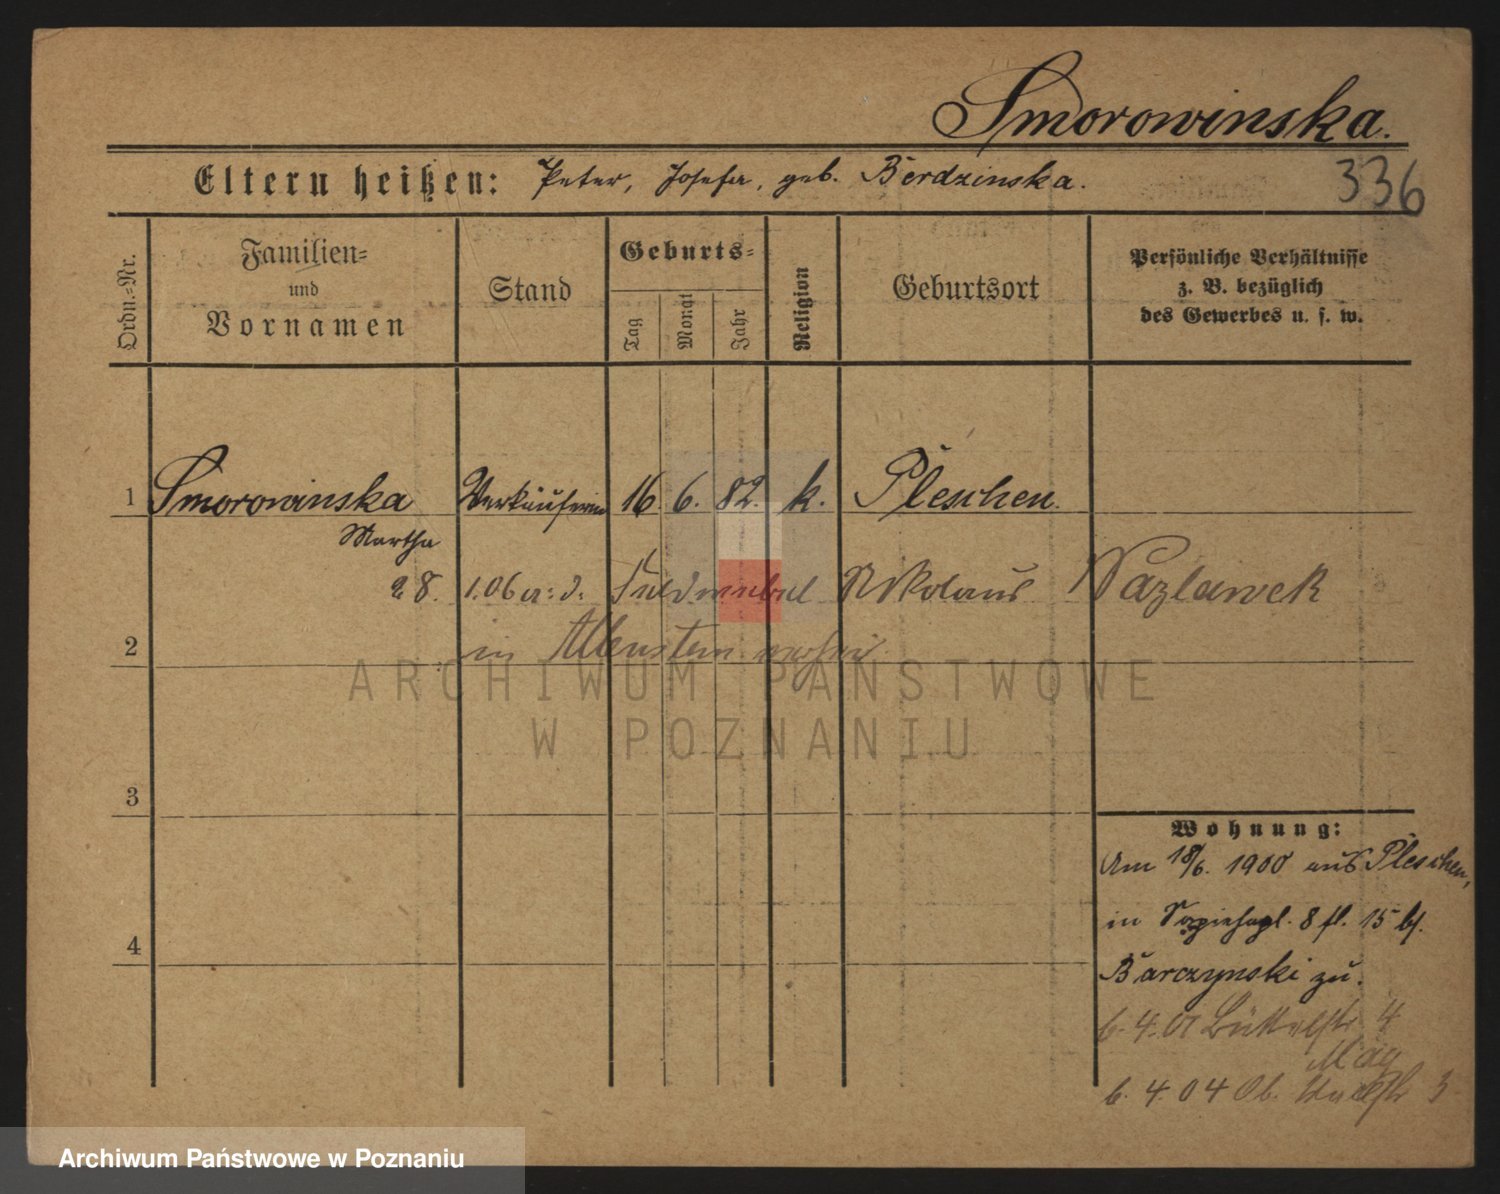 Smorowinska.
Eltern heißen: Peter, Josefa, geb. Berdzinska.
336
Ordn.-Nr.
Familien-
und
Vornamen
Stand
Geburts-
Tag
Monat
Jahr
Religion
Geburtsort
Persönliche Verhältnisse
z. B. bezüglich
des Gewerbes u. s. w.
1 Smorowinska Verkäuferin 16 6. 82. k. Pleschen.
Martha
28. 1.06 a: d. Feldwebel Nikolaus Wazlawek
2 in Allenstein verheir.
ARCHIWUM PAŃSTWOWE
W POZNANIU
3
Wohnung:
Am 18/6. 1900 aus Pleschen,
in 8 fl. 15 bf.
4
Barczynski zu.
b. 4. 01 Büttelstr 4
b. 4. 04 Ob. 3
Archiwum Państwowe w Poznaniu